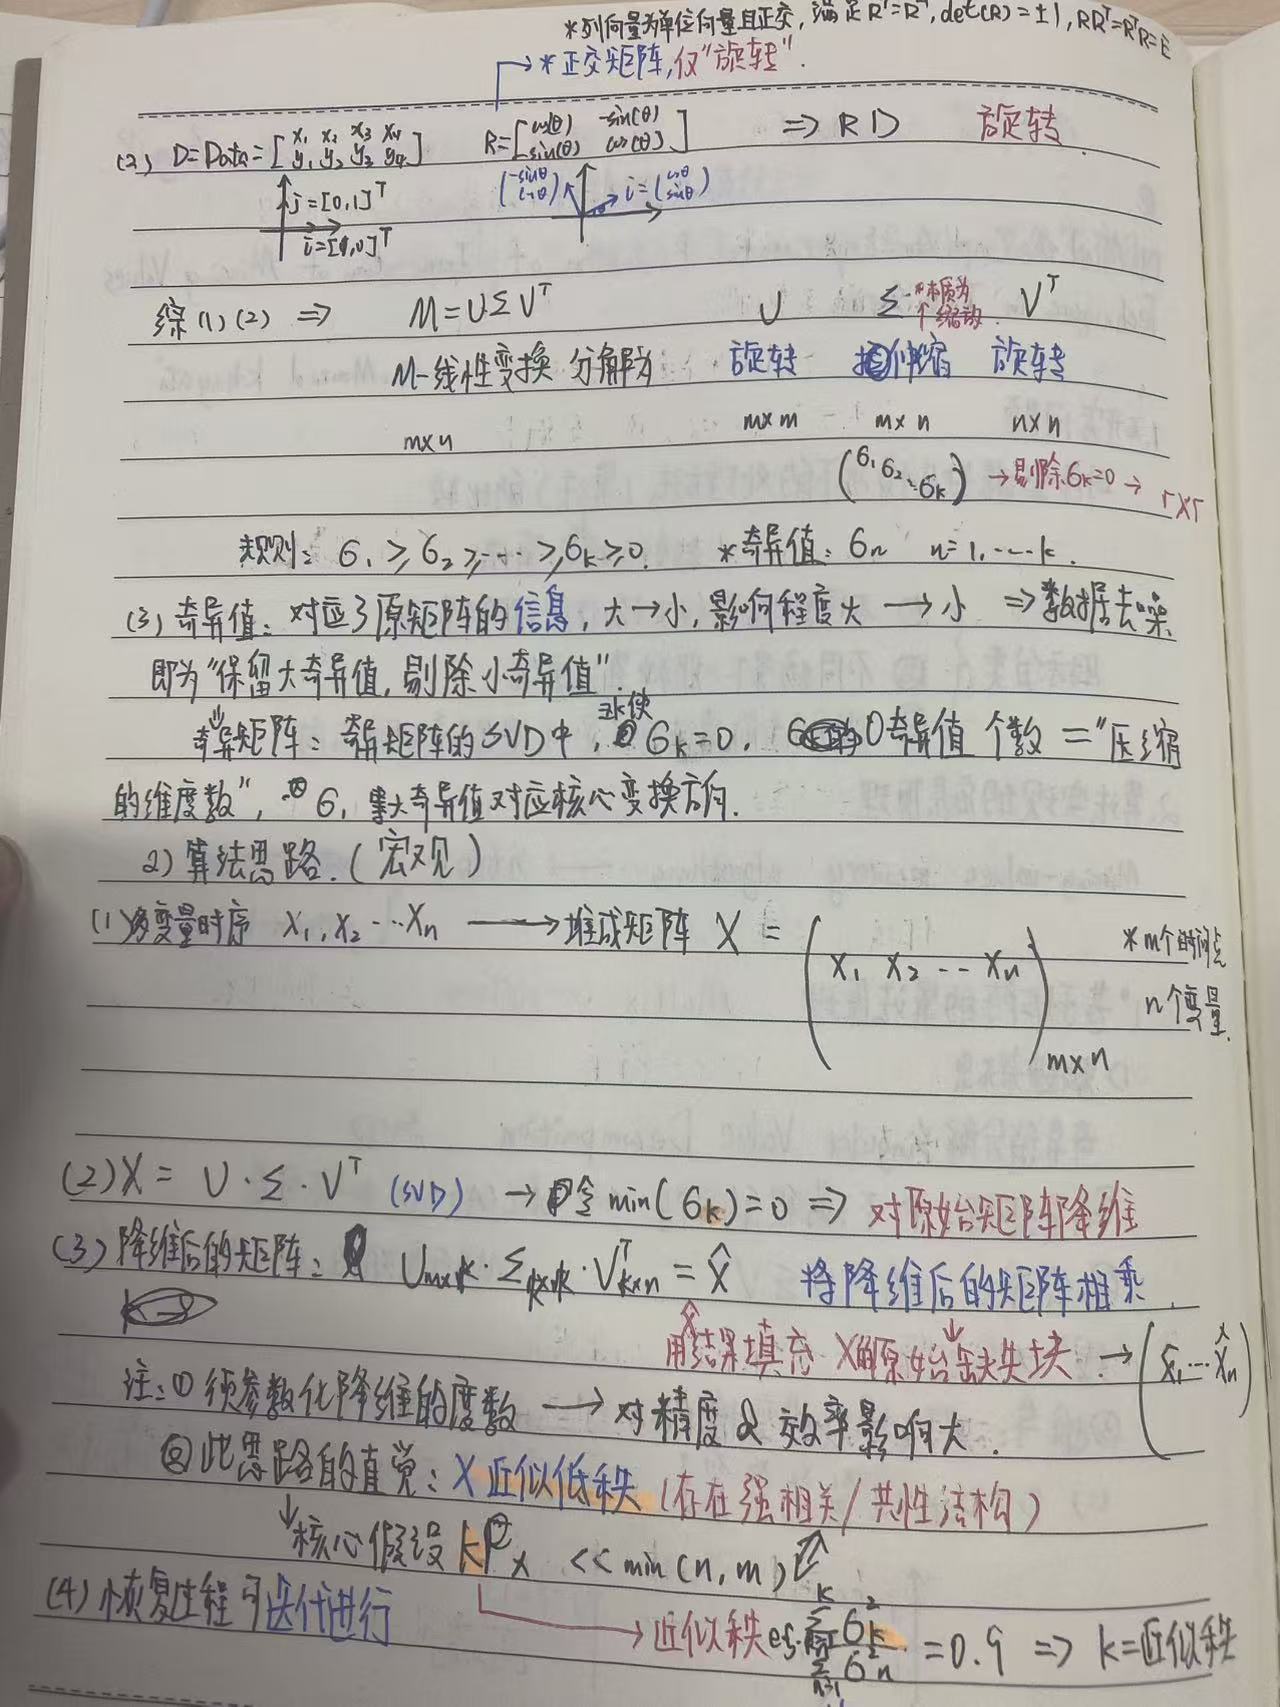 *列向量为单位向量且正交, 满足Rᵀ=R⁻¹, det(R)=±1, RRᵀ=RᵀR=E
*正交矩阵,仅"旋转".
(2) D=Data=[x₁ x₂ x₃ x₄
y₁ y₂ y₃ y₄] R=[cos(θ) -sin(θ)
sin(θ) cos(θ)] ⇒ RD 旋转
j=[0,1]ᵀ (-sinθ
cosθ) i=(cosθ
sinθ)
i=[1,0]ᵀ
综(1)(2) ⇒ M=UΣVᵀ U Σ *本质为
个缩放. Vᵀ
M-线性变换 分解为 旋转 伸缩 旋转
m×n m×m m×n n×n
(σ₁ σ₂ ⋱ σₖ) →剔除σₖ=0→ r×r
规则: σ₁≥σ₂≥…≥σₖ≥0. *奇异值: σₙ n=1,…k.
(3) 奇异值: 对应了原矩阵的信息, 大→小, 影响程度大→小 ⇒数据去噪
即为"保留大奇异值,剔除小奇异值".
↓奇异矩阵: 奇异矩阵的SVD中, ∃k使σₖ=0. 0奇异值 个数="压缩
的维度数", σ₁ 最大奇异值对应核心变换方向.
2) 算法思路.(宏观)
(1)多变量时序 X₁, X₂ … Xₙ →堆成矩阵 X = (X₁ X₂ … Xₙ)m×n *m个时间点
n个变量.
(2) X = U·Σ·Vᵀ (SVD) → 令 min(σₖ)=0 ⇒ 对原始矩阵降维
(3) 降维后的矩阵: Uₘₓₖ·Σₖₓₖ·Vᵀₖₓₙ = X̂ 将降维后的矩阵相乘.
用结果填充 X的原始缺失块. → (X̂₁…X̂ₙ)
注:① 须参数化降维的度数 → 对精度&效率影响大.
②此思路的直觉: X近似低秩 (存在强相关/共性结构)
↓核心假设 kₓ << min(n,m)
(4) 恢复过程可迭代进行
→近似秩 eg. Σσₖ²/Σσₙ² = 0.9 ⇒ k=近似秩